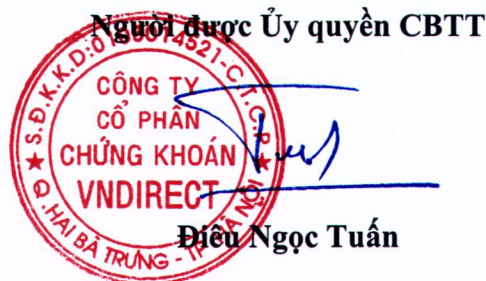 Người được Ủy quyền CBTT
CÔNG TY
CỔ PHẦN
CHỨNG KHOÁN
VNDIRECT
★ Q. HAI BÀ TRƯNG - TP. HÀ NỘI ★
Điêu Ngọc Tuấn